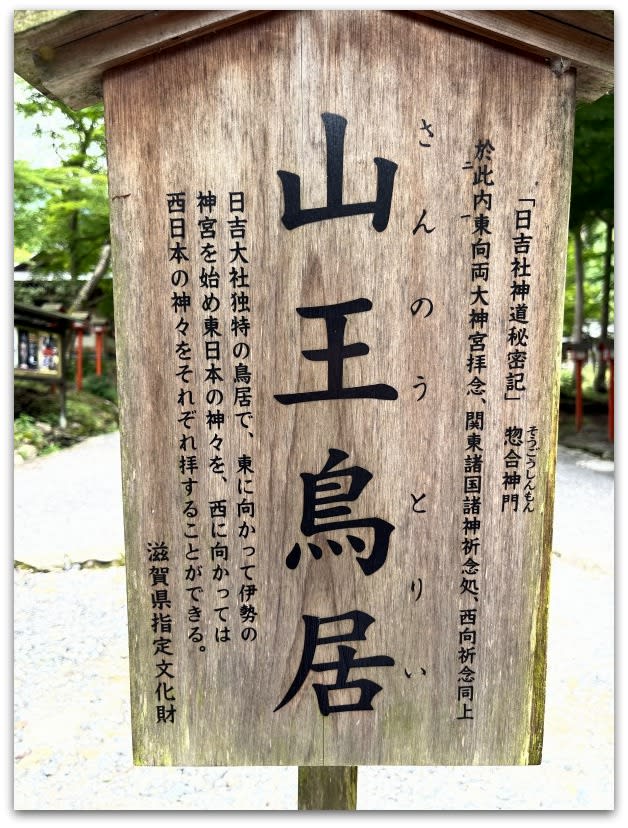 「日吉社神道秘密記」 惣合神門
そうごうしんもん
於此内東向両大神宮拝念、関東諸国諸神祈念処、西向祈念同上
ニ一
さんのうとりい
山王鳥居
日吉大社独特の鳥居で、東に向かって伊勢の
神宮を始め東日本の神々を、西に向かっては
西日本の神々をそれぞれ拝することができる。
滋賀県指定文化財